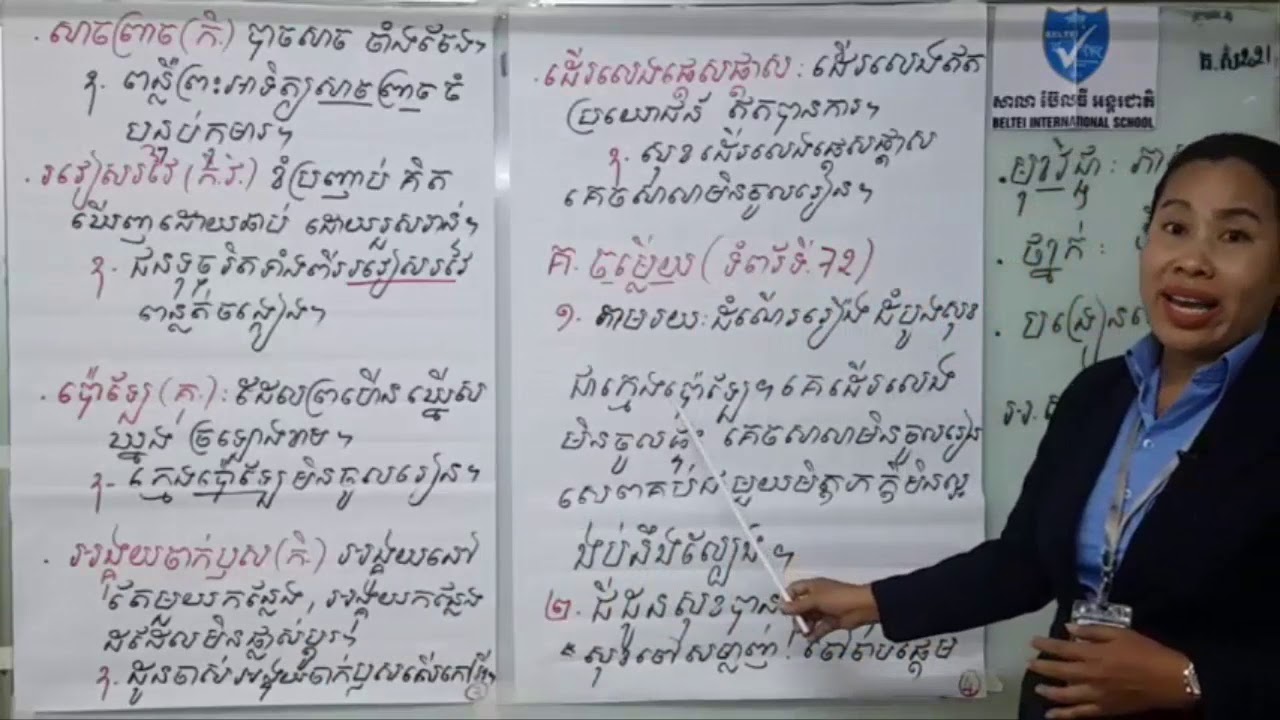 សាចព្រាច (កិ.) បាចសាច ចាំងចែង។
ឧ. ពន្លឺព្រះអាទិត្យសាចព្រាចចំ
បន្ទប់កុមារ។
រវៀសរវៃ (កិ.វិ.) ខំប្រញាប់ គិត
ឃើញដោយឆាប់ ដោយរួសរាន់។
ឧ. ជនទុច្ចរិតទាំងពីររវៀសរវៃ
ពន្លត់ចង្កៀង។
ប៉ោឡែ (គុ.) : ដែលព្រហើន ឈ្លើស
ឃ្នង ច្រឡោងខាម។
ឧ. ក្មេងប៉ោឡែមិនចូលរៀន។
អង្គុយចាក់ឫស (កិ.) អង្គុយនៅ
តែមួយកន្លែង, អង្គុយកន្លែង
ដដែលមិនផ្លាស់ប្តូរ។
ឧ. ដូនចាស់អង្គុយចាក់ឫសលើកៅអី។
3
ដើរលេងផ្តេសផ្តាស : ដើរលេងឥត
ប្រយោជន៍ ឥតបានការ។
ឧ. សុខដើរលេងផ្តេសផ្តាស
គេចសាលាមិនចូលរៀន។
គ. ចម្លើយ (ទំព័រទី.72)
១. តាមរយៈដំណើររឿង ដំបូងសុខ
ជាក្មេងប៉ោឡែ។ គេដើរលេង
មិនចូលផ្ទះ គេចសាលាមិនចូលរៀន
សេពគប់ជាមួយមិត្តភក្តិមិនល្អ
ងប់នឹងល្បែង។
២. ជីដូនសុខបាន
សុខចៅសម្លាញ់! ចៅចាប់ផ្តើម
4
BELTEI
សាលា ប៊ែលធី អន្តរជាតិ
BELTEI INTERNATIONAL SCHOOL
មុខវិជ្ជា:
ថ្នាក់ :
បង្រៀន